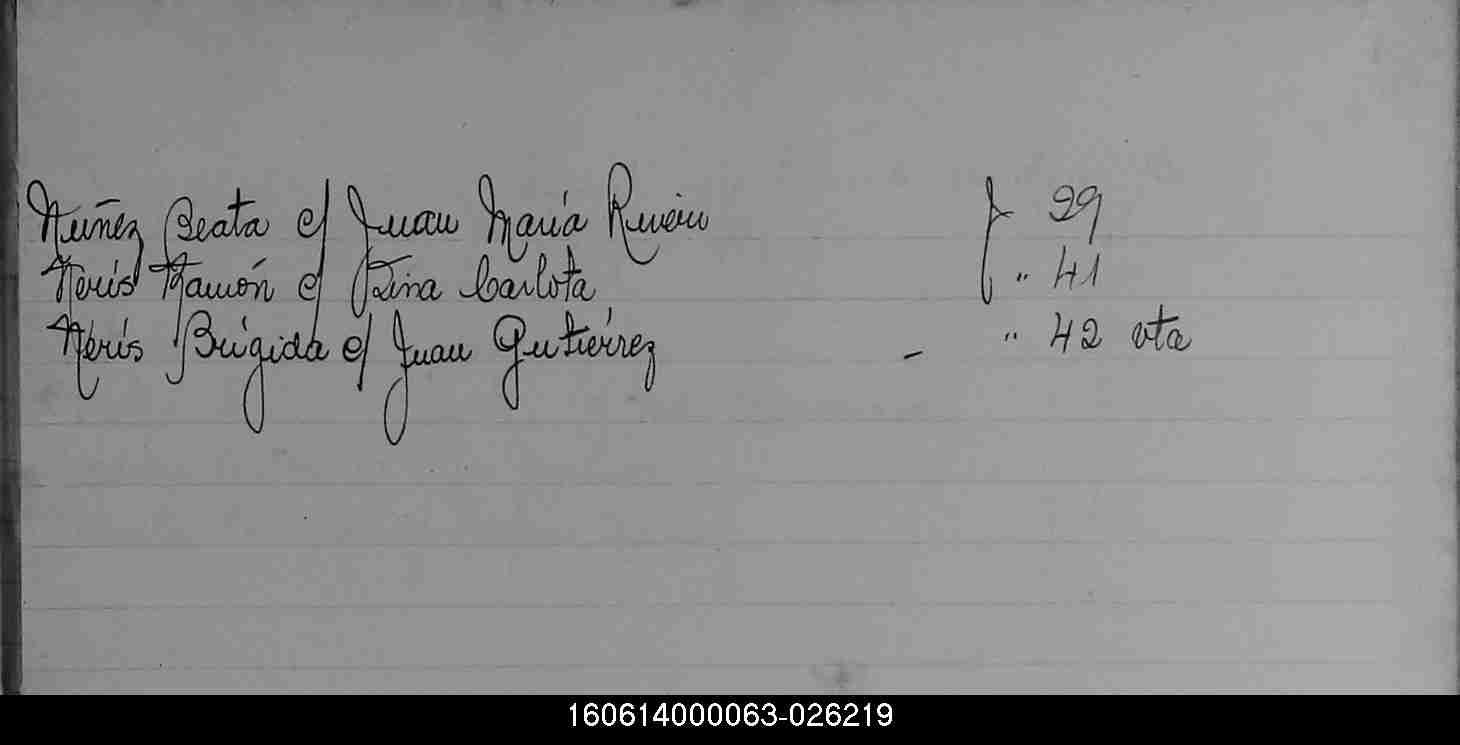 Nuñez Beata c/ Juan María Rivero f 29
Neris Ramón c/ Rina Carlota " 41
Neris Brígida c/ Juan Gutiérrez - " 42 vta
160614000063-026219